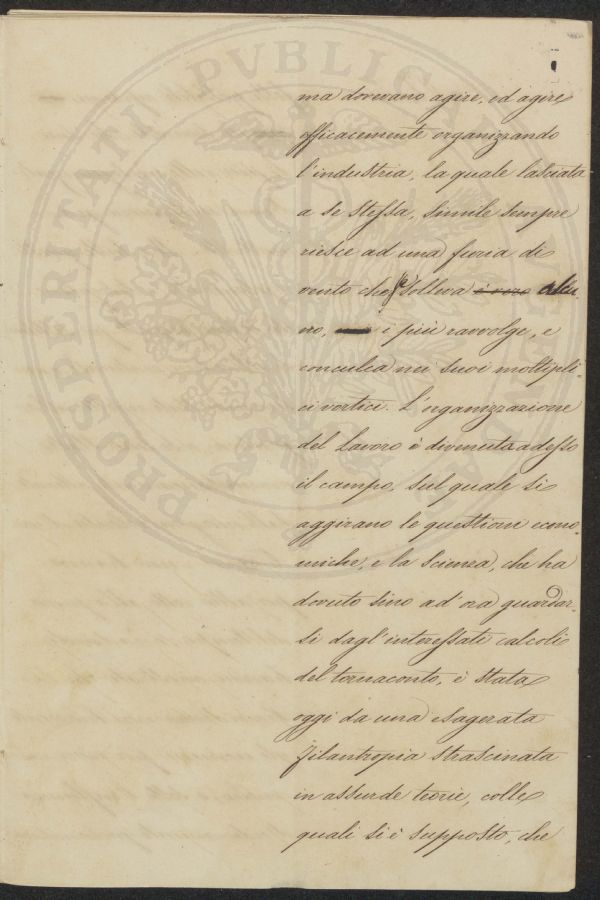 PROSPERITATI PUBLICAE AUGENDAE
ma dovevano agire, ed agire
efficacemente organizzando
l'industria, la quale lasciata
a se stessa, simile sempre
riesce ad una furia di
vento che se solleva è vero alcu-
no, i più ravvolge, e
conculca nei suoi moltipli-
ci vortici. L'organizzazione
del Lavoro è divenuta adesso
il campo, sul quale si
aggirano le questioni econo-
miche, e la Scienza, che ha
dovuto sino ad ora guardar-
si dagl'interessati calcoli
del tornaconto, è stata
oggi da una esagerata
filantropia strascinata
in assurde teorie, colle
quali si è supposto, che